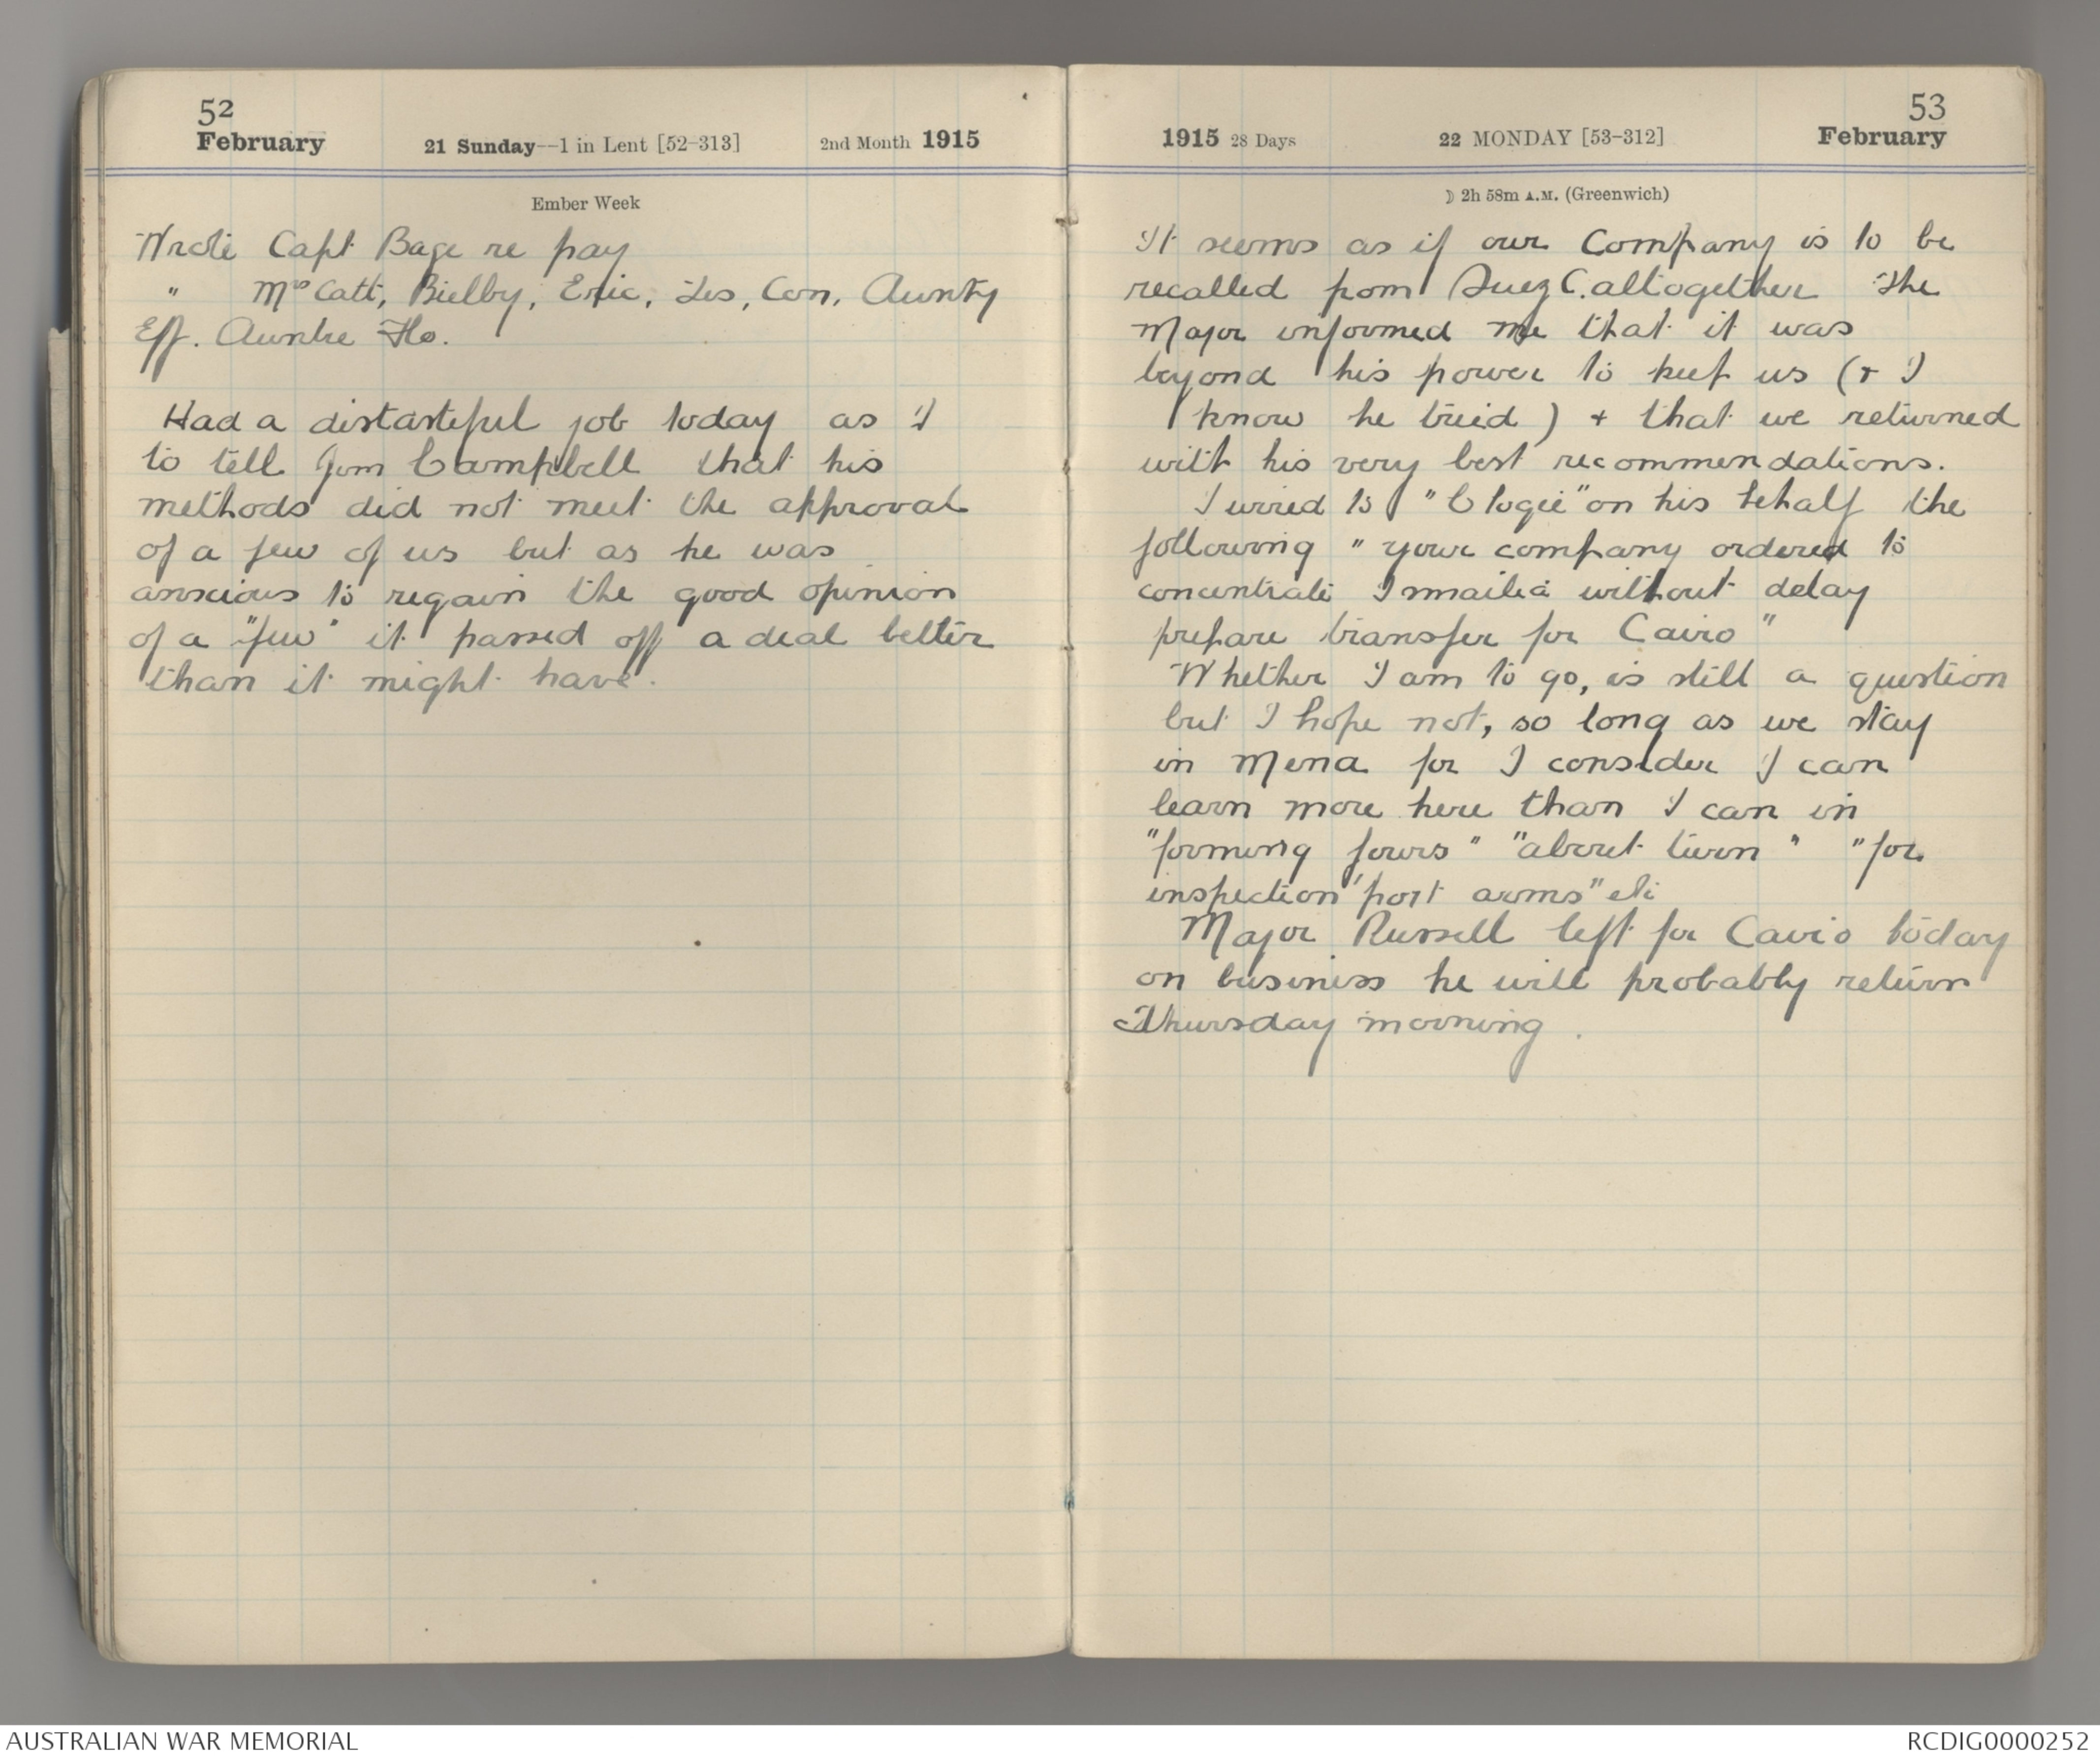 52
February
21 Sunday--1 in Lent [52-313]
2nd Month 1915
Ember Week
Wrote Capt Bage re pay
" Mrs Catt, Bielby, Eric, Les, Con, Aunty
Eff. Auntie Flo.
Had a distasteful job today as I
to tell Jim Campbell that his
methods did not meet the approval
of a few of us but as he was
anxious to regain the good opinion
of a "few" it passed off a deal better
than it might have.
53
1915 28 Days
22 MONDAY [53-312]
February
☽ 2h 58m A.M. (Greenwich)
It seems as if our Company is to be
recalled from Suez C. altogether The
Major informed me that it was
beyond his power to keep us (& I
know he tried) & that we returned
with his very best recommendations.
I wired to "Clogie" on his behalf the
following "your company ordered to
concentrate Ismailia without delay
prepare transfer for Cairo"
Whether I am to go, is still a question
but I hope not, so long as we stay
in Mena for I consider I can
learn more here than I can in
"forming fours" "about turn" "for
inspection port arms" etc
Major Russell left for Cairo today
on business he will probably return
Thursday morning.
AUSTRALIAN WAR MEMORIAL
RCDIG0000252